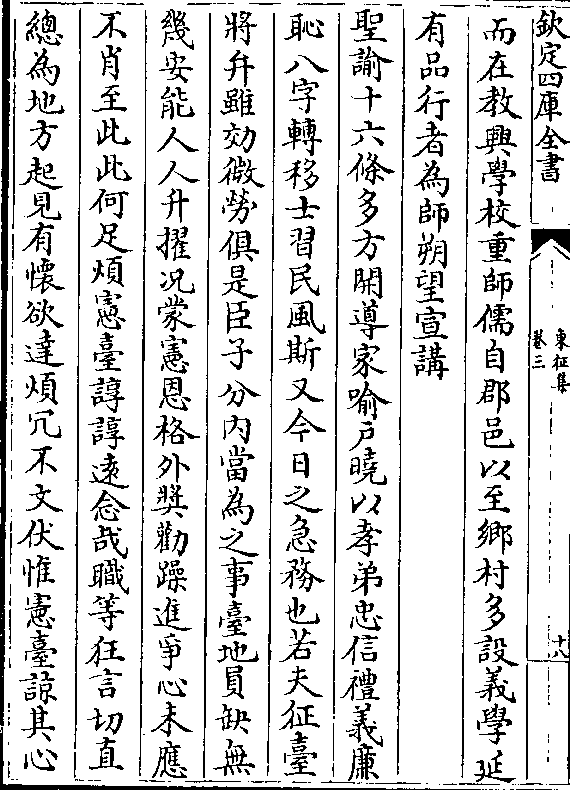 欽定四庫全書
東征集
卷三
十八
而在教興學校重師儒自郡邑以至鄉村多設義學延
有品行者為師朔望宣講
聖諭十六條多方開導家喻戶曉以孝弟忠信禮義廉
恥八字轉移士習民風斯又今日之急務也若夫征臺
將弁雖効微勞俱是臣子分內當為之事臺地員缺無
幾安能人人升擢况蒙憲恩格外奬勸躁進爭心未應
不肖至此此何足煩憲臺諄諄遠念哉職等狂言切直
總為地方起見有懷欲達煩冗不文伏惟憲臺諒其心